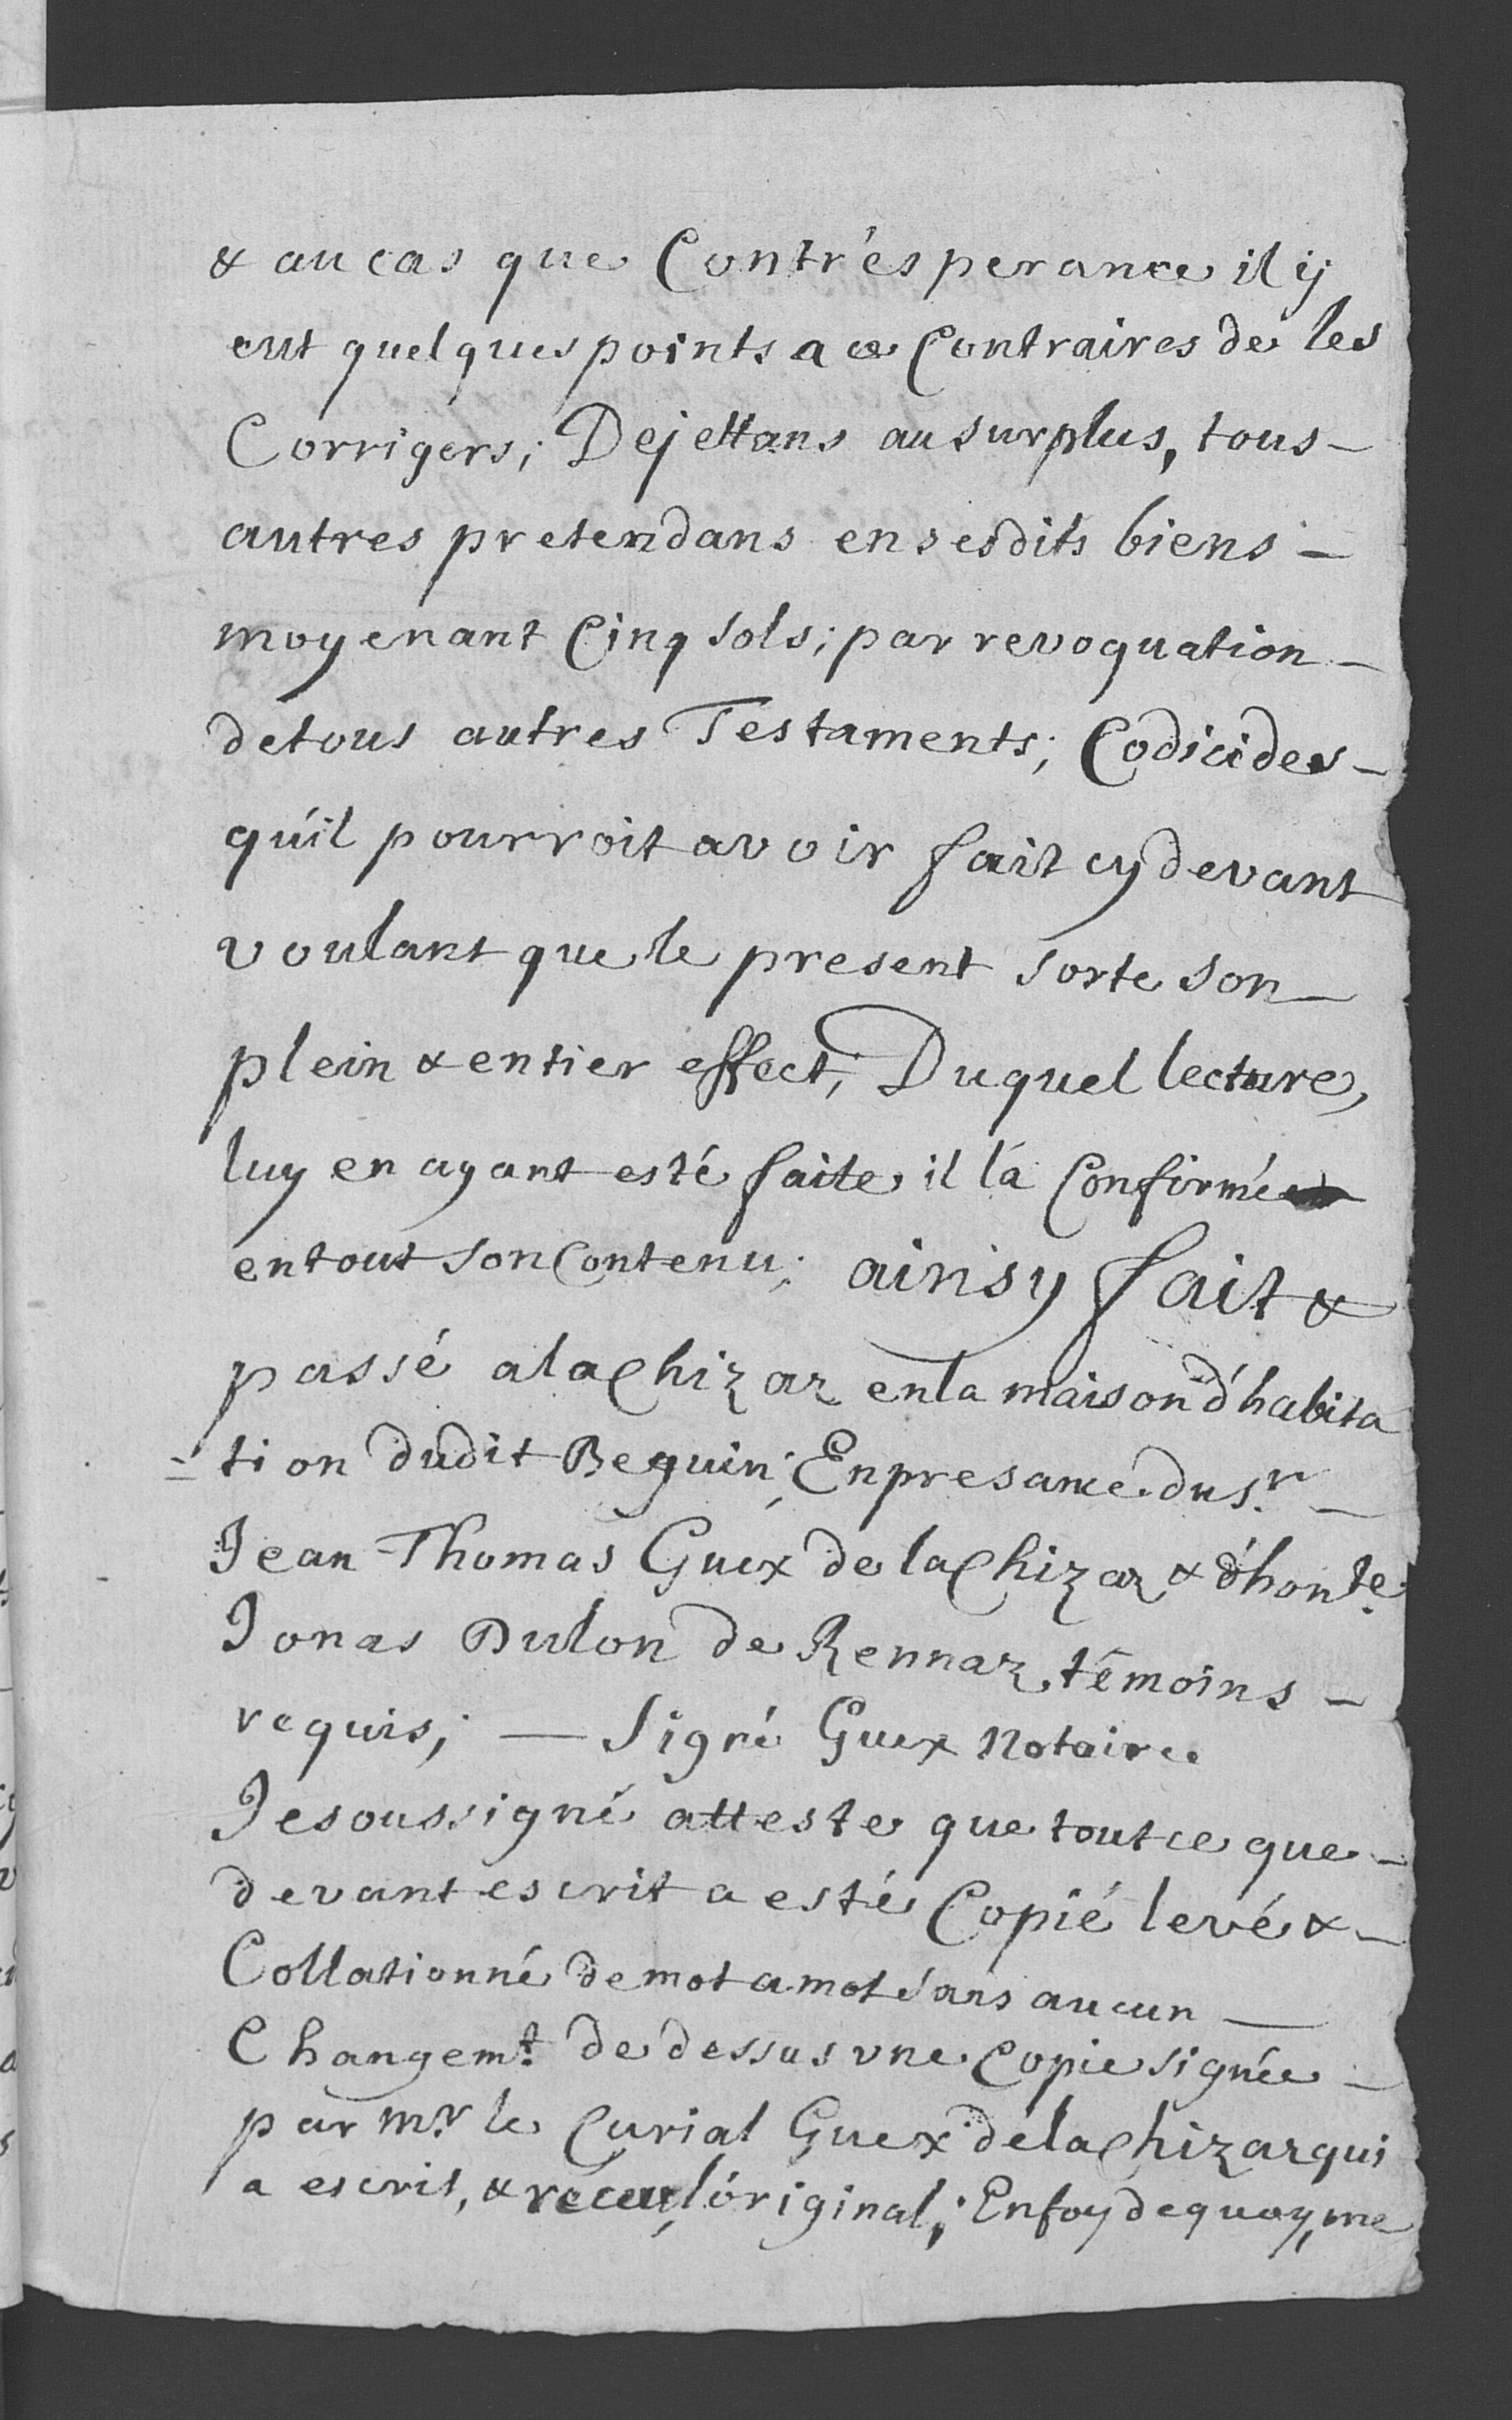 & au cas que Contr'esperance il ij
eut quelques points a ce Contraires de les
Corrigers; Dejettans au surplus, tous -
autres pretendans en sesdits biens -
moyenant Cinq sols; par revoquation -
de tous autres Testaments; Codicides -
qu'il pourroit avoir fait cy devant
voulant que le present sorte son -
plein & entier effect; Duquel lecture,
luy en ayant esté faite il l'a Confirmé
en tout son Contenu; ainsy fait &
passé a la Chizaz en la maison d'habita
= tion dudit Beguin; En presance du sr. -
Jean Thomas Guex de la Chizaz & d'honte.
Jonas Dulon de Rennaz témoins -
requis; — Signé Guex Notaire
Je soussigné atteste que tout ce que -
devant escrit a esté Copié levé & -
Collationné de mot a mot sans aucun —
Changemt. de dessus une Copie signée -
par Mr. le Curial Guex de la Chizaz qui
a escrit, & receu l'original; En foy de quoy, me